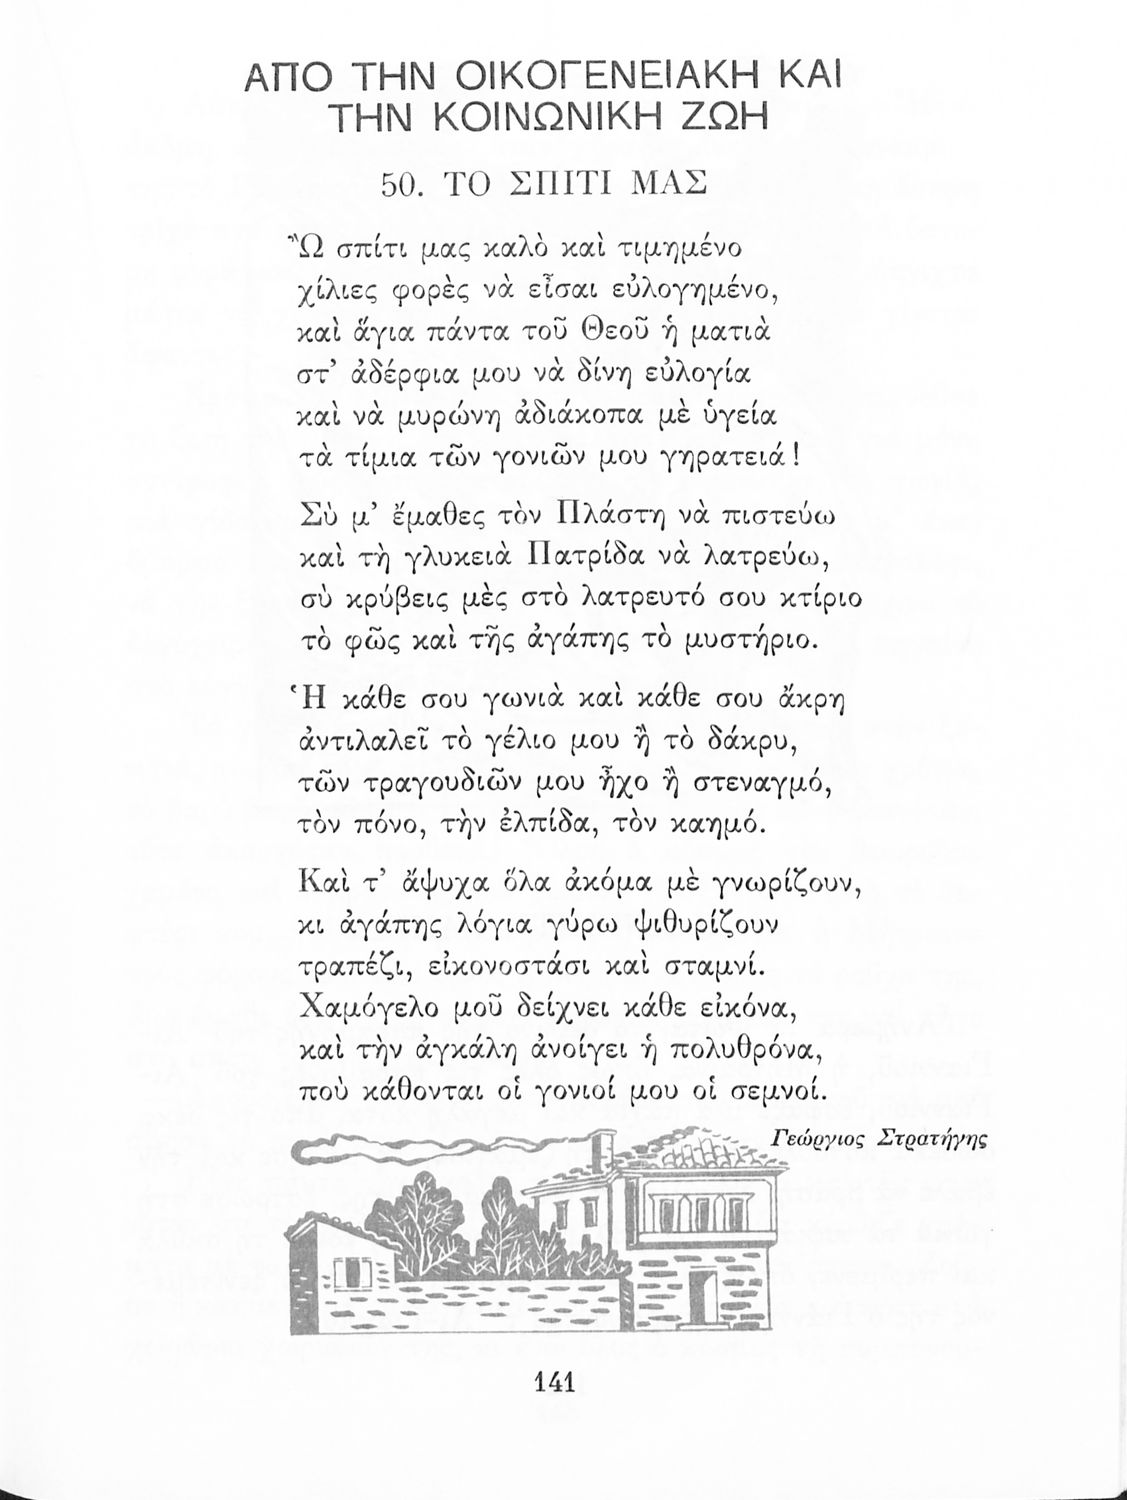 ΑΠΟ ΤΗΝ ΟΙΚΟΓΕΝΕΙΑΚΗ ΚΑΙ
ΤΗΝ ΚΟΙΝΩΝΙΚΗ ΖΩΗ
50. ΤΟ ΣΠΙΤΙ ΜΑΣ
Ὢ σπίτι μας καλὸ καὶ τιμημένο
χίλιες φορὲς νὰ εἶσαι εὐλογημένο,
καὶ ἅγια πάντα τοῦ Θεοῦ ἡ ματιὰ
στ’ ἀδέρφια μου νὰ δίνη εὐλογία
καὶ νὰ μυρώνη ἀδιάκοπα μὲ ὑγεία
τὰ τίμια τῶν γονιῶν μου γηρατειά!
Σὺ μ’ ἔμαθες τὸν Πλάστη νὰ πιστεύω
καὶ τὴ γλυκειὰ Πατρίδα νὰ λατρεύω,
σὺ κρύβεις μὲς στὸ λατρευτό σου κτίριο
τὸ φῶς καὶ τῆς ἀγάπης τὸ μυστήριο.
Ἡ κάθε σου γωνιὰ καὶ κάθε σου ἄκρη
ἀντιλαλεῖ τὸ γέλιο μου ἢ τὸ δάκρυ,
τῶν τραγουδιῶν μου ἦχο ἢ στεναγμό,
τὸν πόνο, τὴν ἐλπίδα, τὸν καημό.
Καὶ τ’ ἄψυχα ὅλα ἀκόμα μὲ γνωρίζουν,
κι ἀγάπης λόγια γύρω ψιθυρίζουν
τραπέζι, εἰκονοστάσι καὶ σταμνί.
Χαμόγελο μοῦ δείχνει κάθε εἰκόνα,
καὶ τὴν ἀγκάλη ἀνοίγει ἡ πολυθρόνα,
ποὺ κάθονται οἱ γονιοί μου οἱ σεμνοί.
Γεώργιος Στρατήγης
141